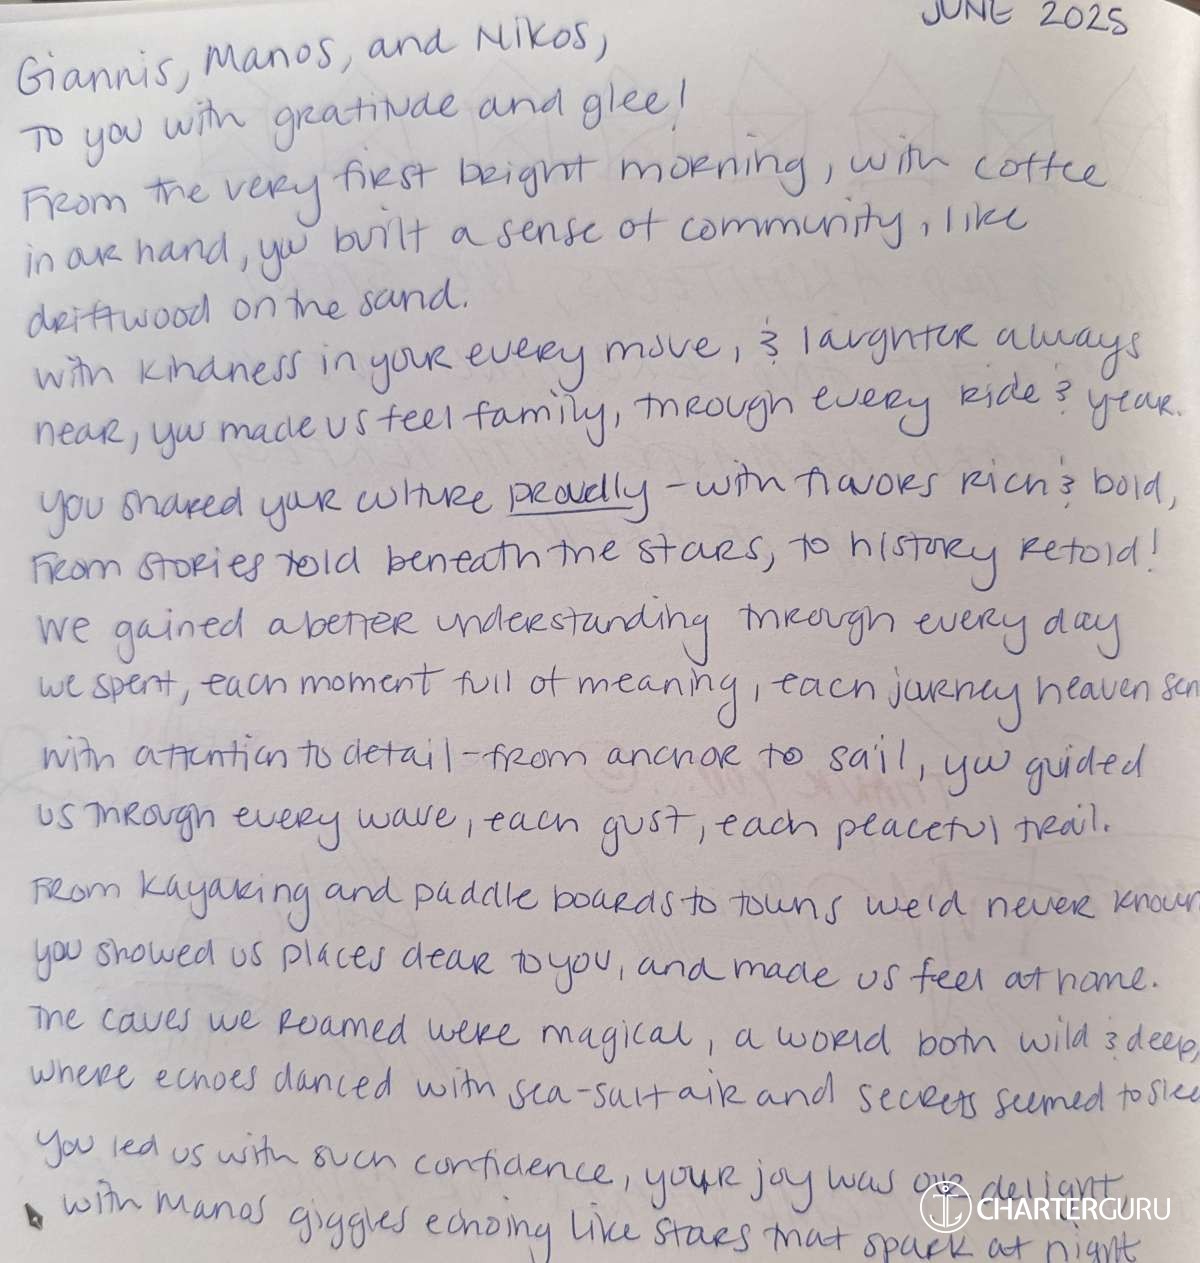 JUNE 2025
Giannis, Manos, and Nikos,
To you with gratitude and glee!
From the very first bright morning, with coffee
in our hand, you built a sense of community, like
driftwood on the sand.
with kindness in your every move, & laughter always
near, you made us feel family, through every ride & year.
you shared your culture proudly - with flavors rich & bold,
From stories told beneath the stars, to history retold!
We gained a better understanding through every day
we spent, each moment full of meaning, each journey heaven sen
with attention to detail - from anchor to sail, you guided
us through every wave, each gust, each peaceful trail.
From kayaking and paddle boards to towns we'd never known
you showed us places dear to you, and made us feel at home.
The caves we roamed were magical, a world both wild & deep,
where echoes danced with sea-salt air and secrets seemed to slee
You led us with such confidence, your joy was our delight,
with Manos giggles echoing like stars that spark at night
CHARTERGURU